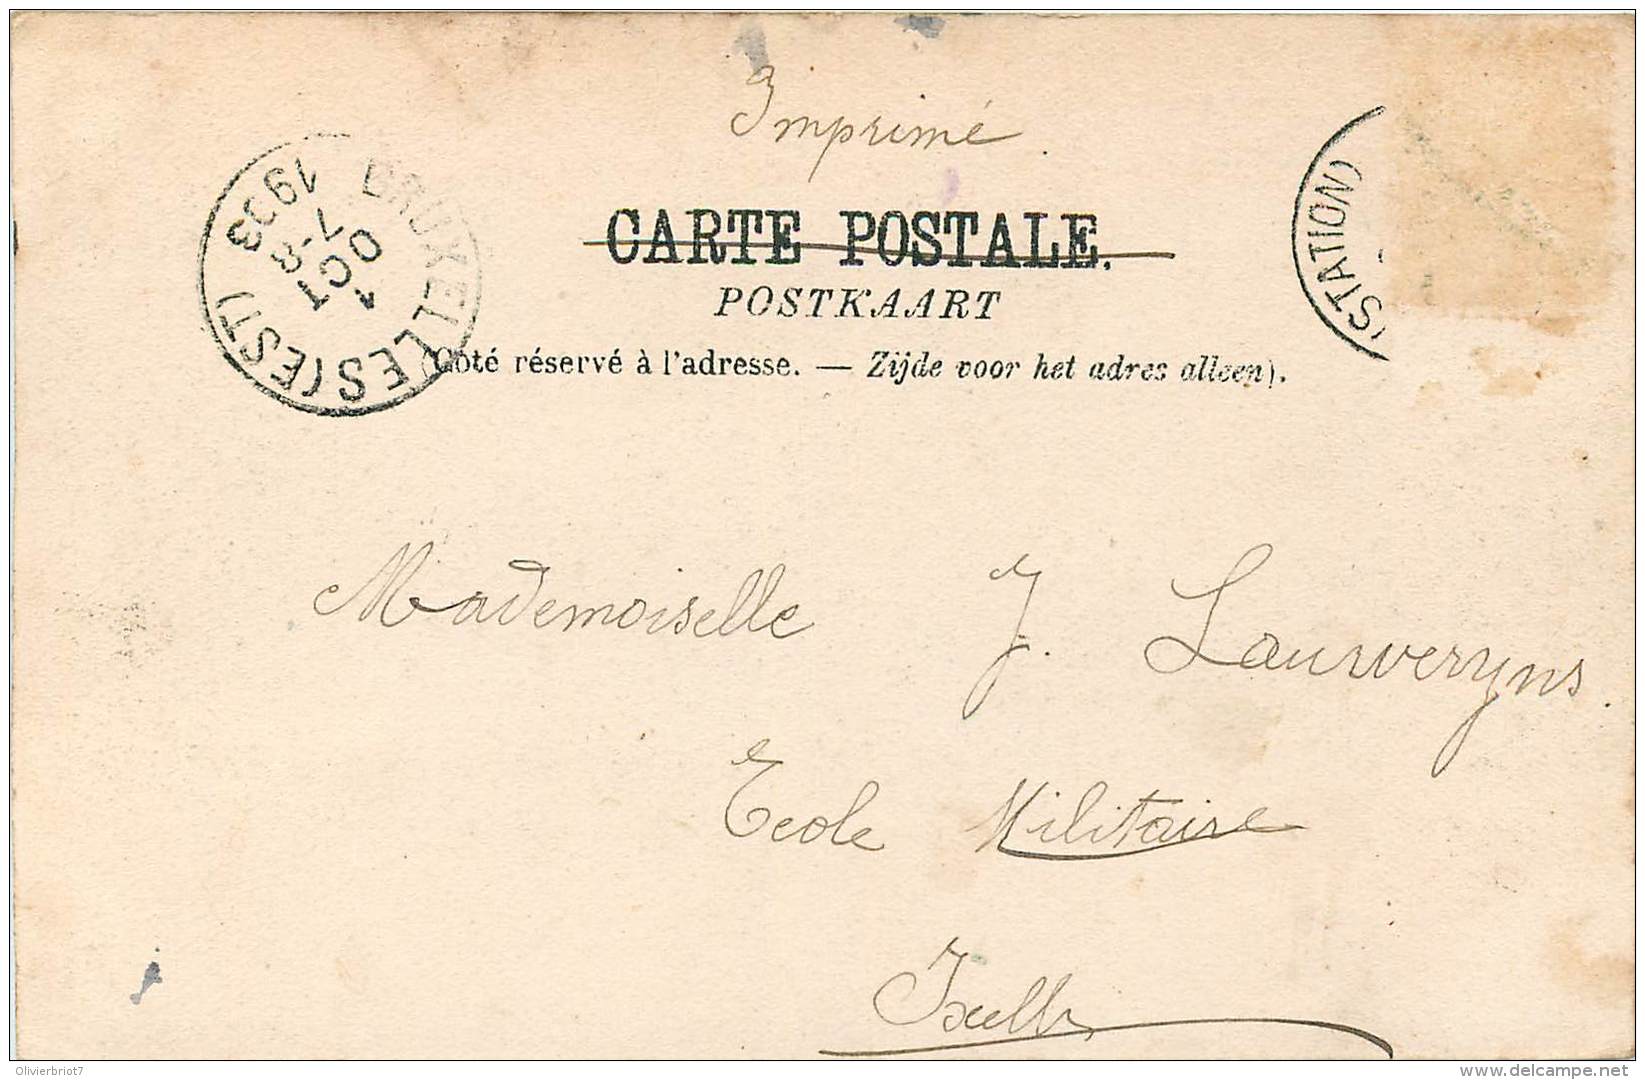 Imprimé
CARTE POSTALE.
POSTKAART
(Côté réservé à l'adresse. — Zijde voor het adres alleen).
BRUXELLES (EST)
1
OCT
7-8
1903
(STATION)
Mademoiselle J. Lauweryns.
Ecole Militaire
Ixelles
Olivierbriot7
delcampe.net